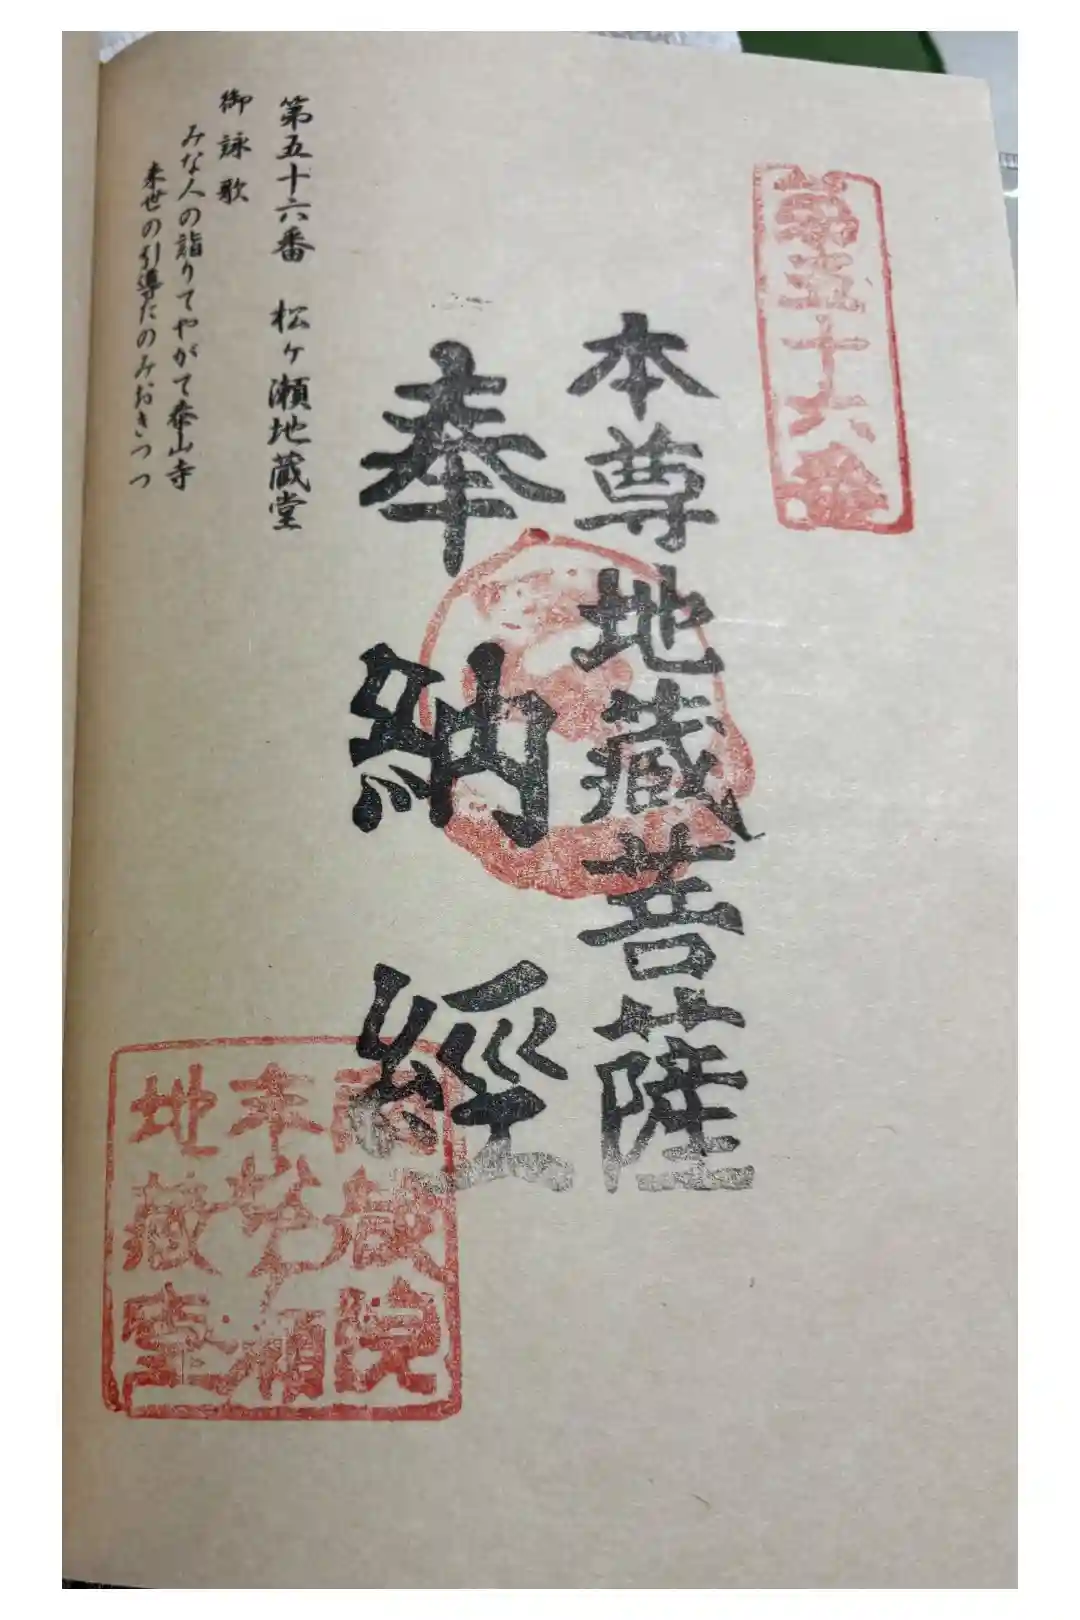 第五十六番
本尊地蔵菩薩
奉納經
第五十六番　松ヶ瀬地蔵堂
御詠歌
みな人の詣りてやがて泰山寺
来世の引導たのみおきつつ
蔵院
地蔵堂